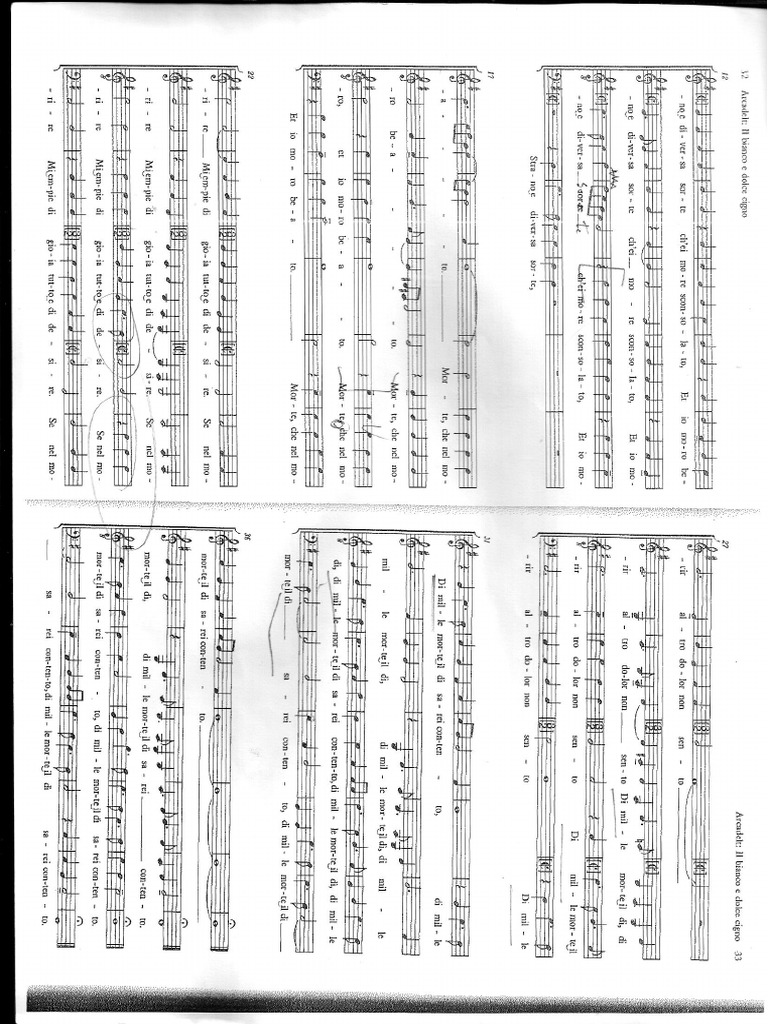 32 Arcadelt: Il bianco e dolce cigno
12
-no e di-ver-sa sor-te ch'ei mo-re scon-so-la-to, Et io mo-ro be-
-no e di-ver-sa sor-te ch'ei mo-re scon-so-la-to, Et io mo-
-no e di-ver-sa ch'ei mo-re scon-so-la-to, Et io mo-
Stra-no e di-ver-sa sor-te,
17
-a-to. Mor-te, che nel mo-
-ro be-a-to. Mor-te, che nel mo-
-ro, et io mo-ro be-a-to. Mor-te, che nel mo-
Et io mo-ro be-a-to. Mor-te, che nel mo-
22
-ri-re Mi em-pie di gio-ia tut-to e di de-si-re. Se nel mo-
-ri-re Mi em-pie di gio-ia tut-to e di de-si-re. Se nel mo-
-ri-re Mi em-pie di gio-ia tut-to e di de-si-re. Se nel mo-
-ri-re Mi em-pie di gio-ia tut-to e di de-si-re. Se nel mo-
Arcadelt: Il bianco e dolce cigno 33
27
-rir al-tro do-lor non sen-to
-rir al-tro do-lor non sen-to Di mil-le mor-te il di, di
-rir al-tro do-lor non sen-to Di mil-le mor-te il
-rir al-tro do-lor non sen-to Di mil-le
31
Di mil-le mor-te il di sa-rei con-ten-to, di mil-le
mil-le mor-te il di, di mil-le mor-te il di, di mil-le
di, di mil-le mor-te il di sa-rei con-ten-to, di mil-le mor-te il di, di mil-le
mor-te il di sa-rei con-ten-to, di mil-le mor-te il di
36
mor-te il di sa-rei con-ten-to.
mor-te il di, di mil-le mor-te il di sa-rei con-ten-to.
mor-te il di sa-rei con-ten-to, di mil-le mor-te il di sa-rei con-ten-to.
sa-rei con-ten-to, di mil-le mor-te il di sa-rei con-ten-to.